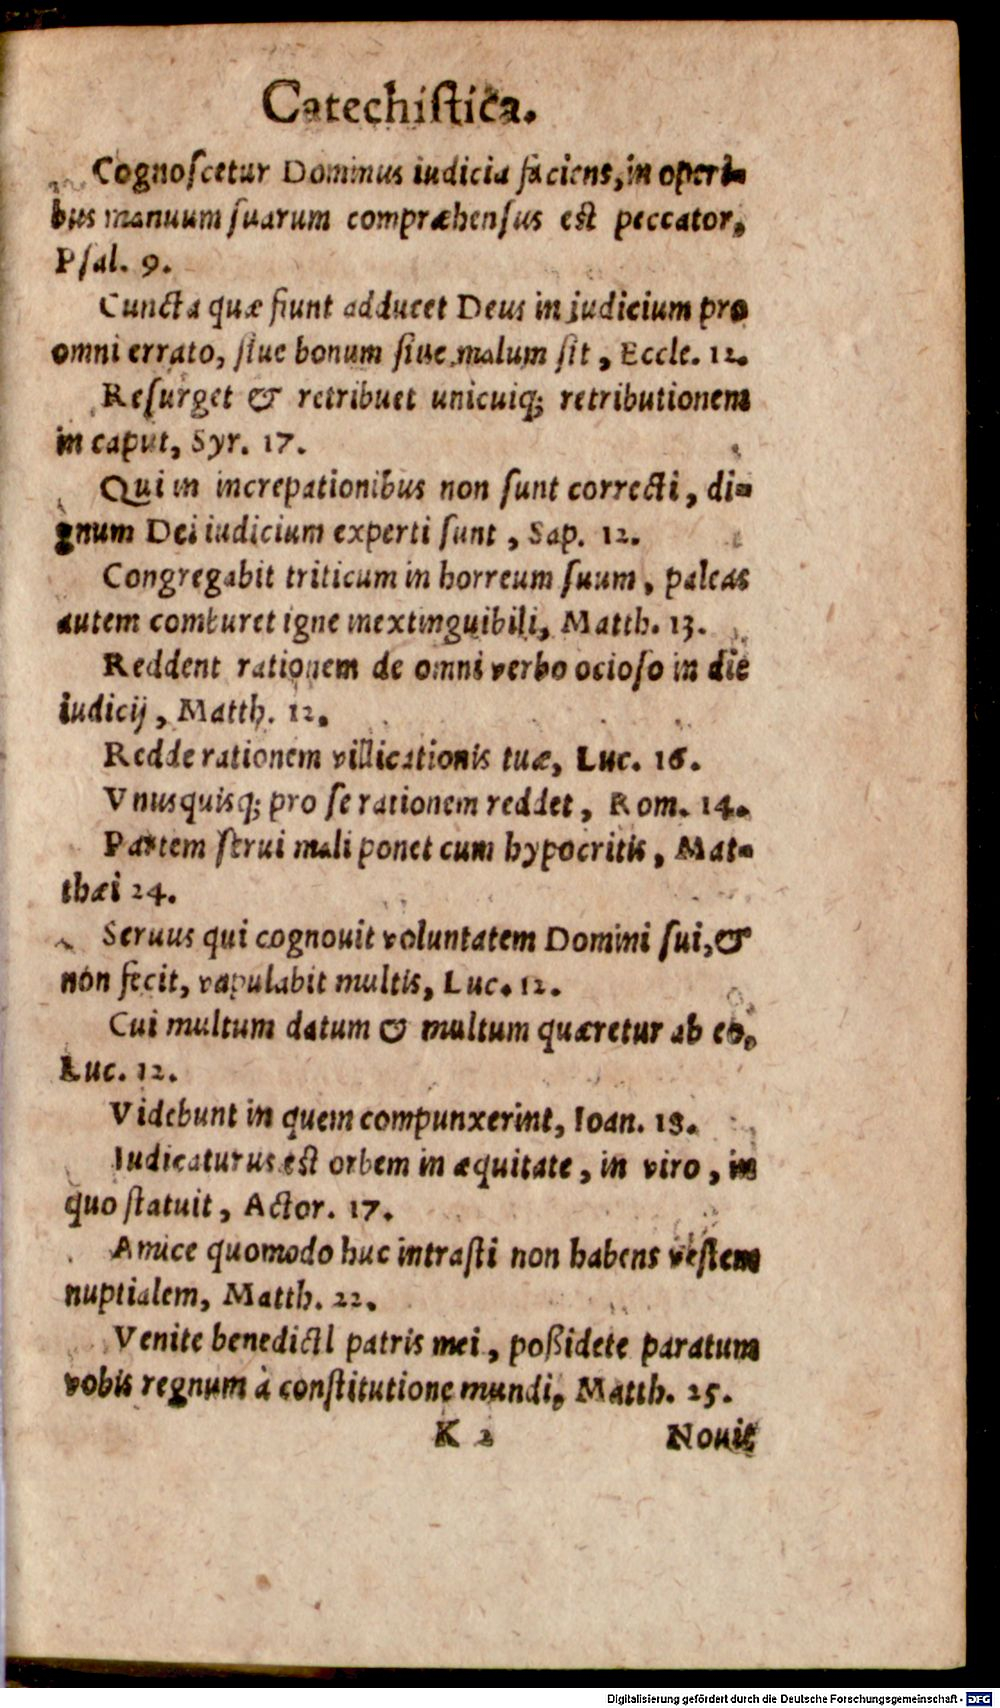 Catechiſtica.
Cognoſcetur Dominus iudicia faciens, in operi-
bus manuum ſuarum compræhenſus est peccator,
Pſal. 9.
Cuncta quæ fiunt adducet Deus in judicium pro
omni errato, ſiue bonum ſiue malum ſit, Eccle. 12.
Reſurget & retribuet unicuiq; retributionem
in caput, Syr. 17.
Qui in increpationibus non ſunt correcti, di-
gnum Dei iudicium experti ſunt, Sap. 12.
Congregabit triticum in horreum ſuum, paleas
autem comburet igne inextinguibili, Matth. 13.
Reddent rationem de omni verbo ocioſo in die
iudicij, Matth. 12.
Redde rationem villicationis tuæ, Luc. 16.
Vnusquisq; pro ſe rationem reddet, Rom. 14.
Partem ſerui mali ponet cum hypocritis, Mat-
thæi 24.
Seruus qui cognouit voluntatem Domini ſui, &
non fecit, vapulabit multis, Luc. 12.
Cui multum datum & multum quæretur ab eo,
Luc. 12.
Videbunt in quem compunxerint, Ioan. 18.
Iudicaturus est orbem in æquitate, in viro, in
quo ſtatuit, Actor. 17.
Amice quomodo huc intraſti non habens veſtem
nuptialem, Matth. 22.
Venite benedictI patris mei, poßidete paratum
vobis regnum à conſtitutione mundi, Matth. 25.
K 2 Nouit
Digitalisierung gefördert durch die Deutsche Forschungsgemeinschaft - DFG